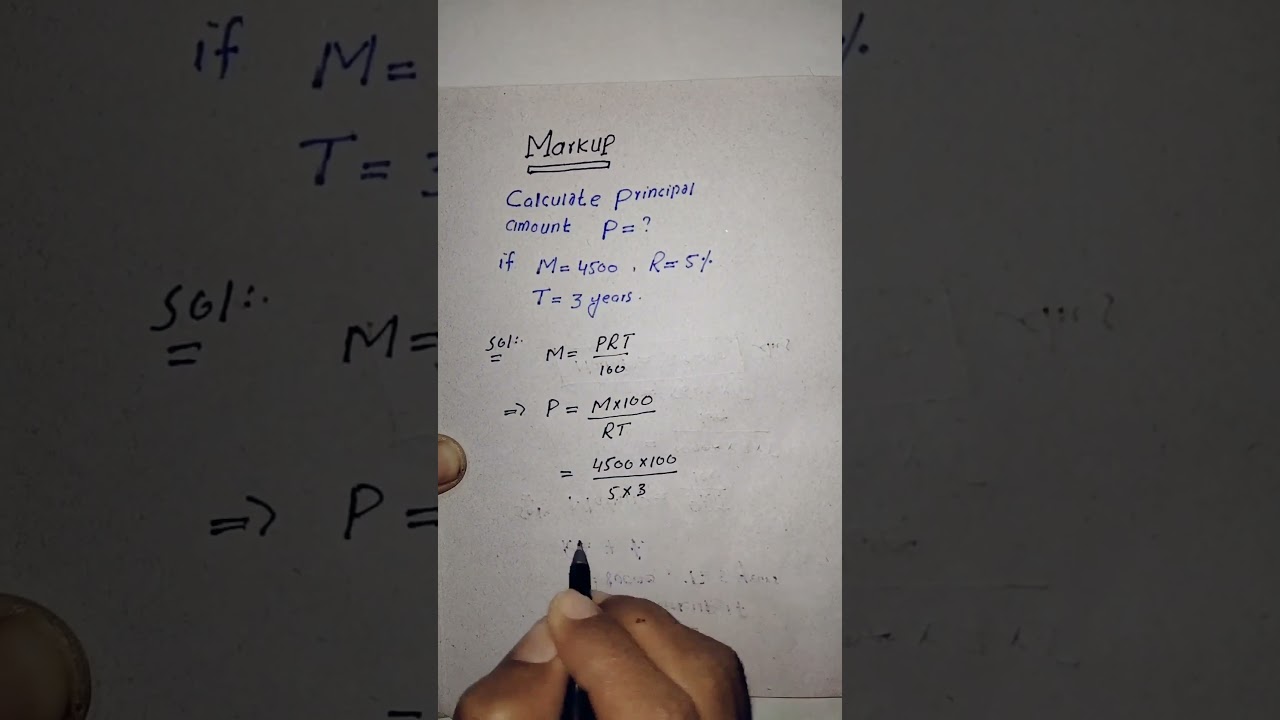 Markup
Calculate principal
amount P = ?
if M = 4500 , R = 5%
T = 3 years.
Sol:. M = PRT
100
=> P = M×100
RT
= 4500×100
5×3
if M=
T = 3
Sol:.
M=
=> P =
%